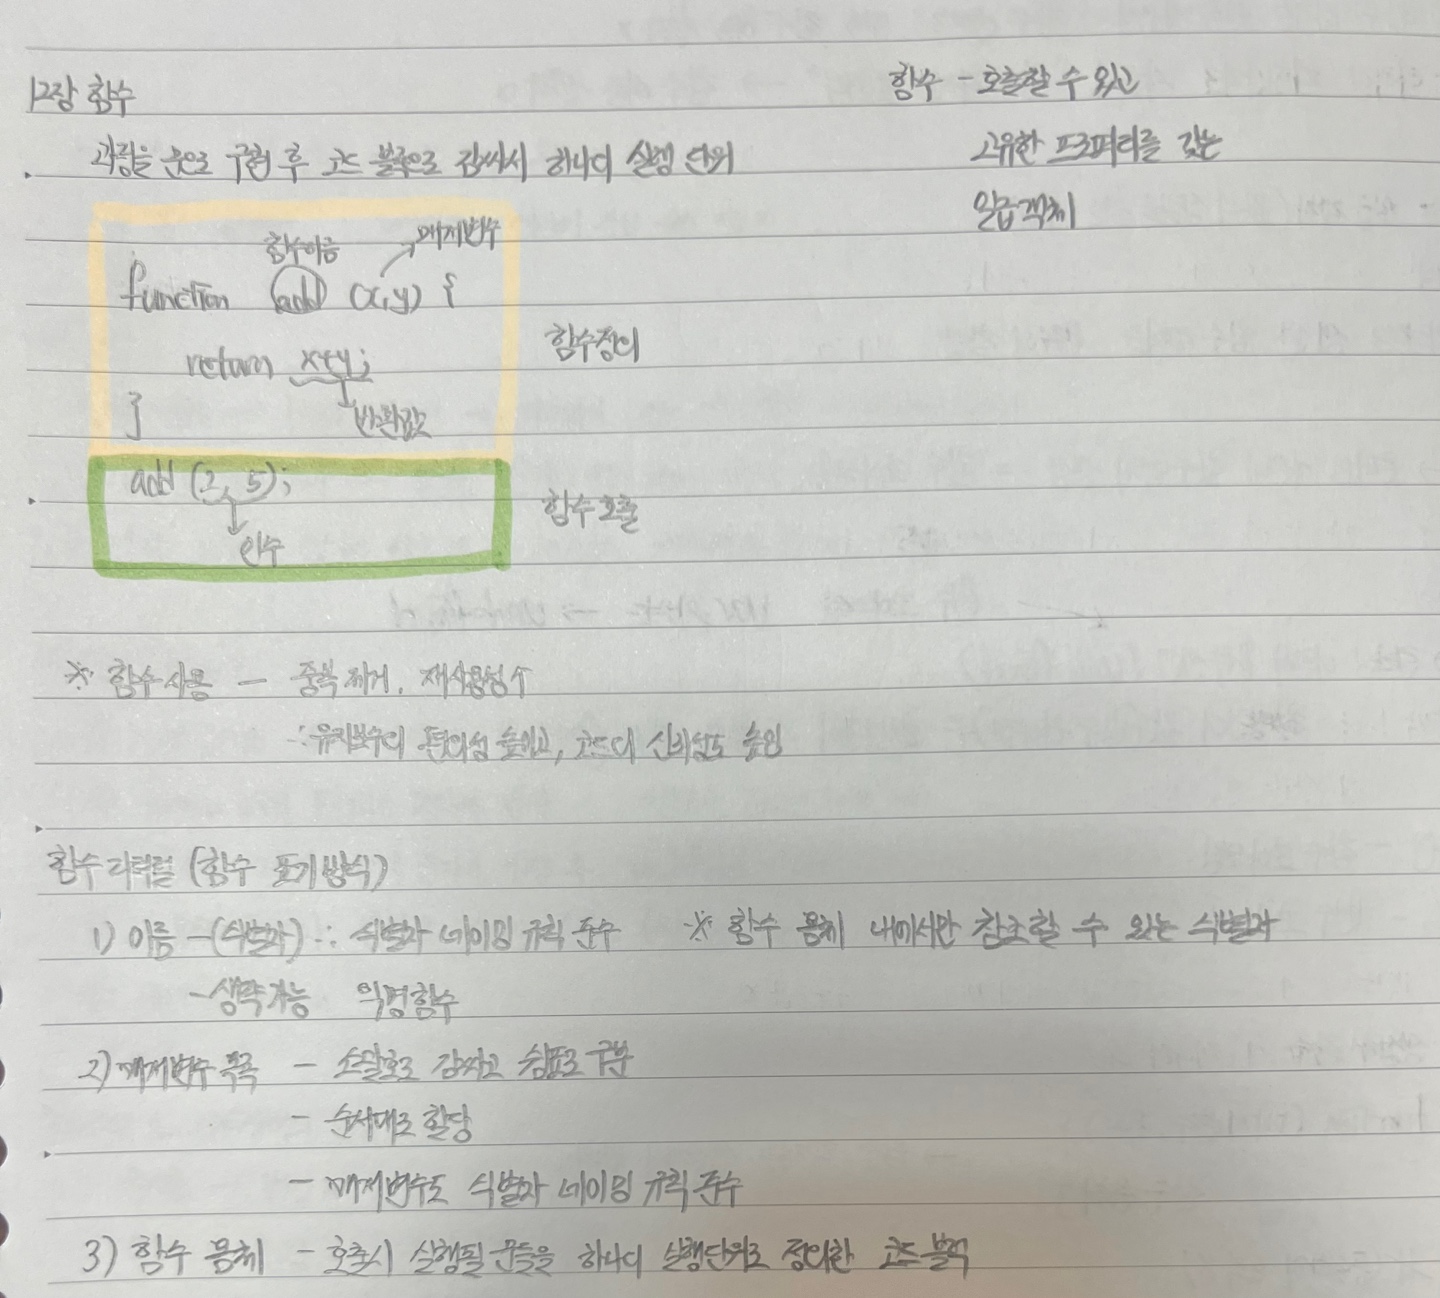 12장 함수
함수 - 호출할 수 있고
고유한 프로퍼티를 갖는
일급객체
과정을 문으로 구현 후 코드 블록으로 감싸서 하나의 실행 단위
함수이름
매개변수
function add (x,y) {
return x+y;
}
반환값
함수정의
add (2, 5);
인수
함수 호출
※ 함수 사용 - 중복 제거, 재사용성↑
∴ 유지보수의 편의성 높이고, 코드의 신뢰성도 높임
함수 리터럴 (함수 표기 방식)
1) 이름 - (식별자) ∴ 식별자 네이밍 규칙 준수 ※ 함수 몸체 내에서만 참조할 수 있는 식별자
- 생략가능 익명함수
2) 매개변수 목록 - 소괄호로 감싸고 쉼표로 구분
- 순서대로 할당
- 매개변수도 식별자 네이밍 규칙 준수
3) 함수 몸체 - 호출시 실행될 문들을 하나의 실행단위로 정의한 코드 블럭